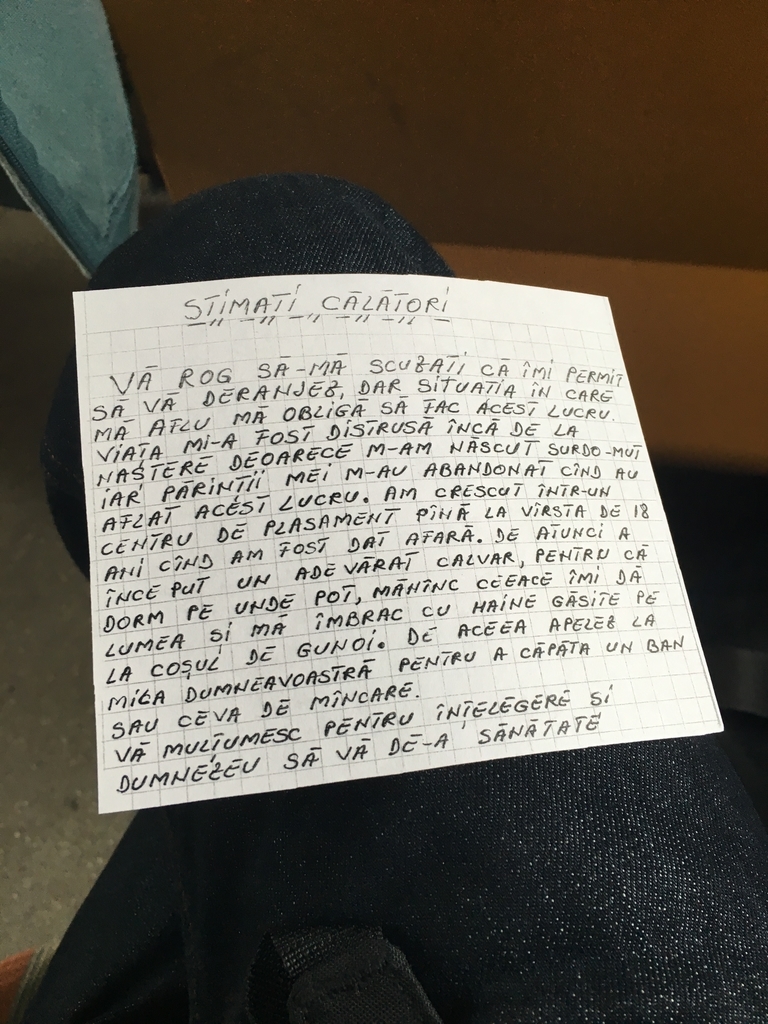 STIMATI CĂLĂTORI
VĂ ROG SĂ-MĂ SCUZATI CĂ ÎMI PERMIT
SĂ VĂ DERANJEZ, DAR SITUATIA ÎN CARE
MĂ AFLU MĂ OBLIGĂ SĂ FAC ACEST LUCRU.
VIAȚA MI-A FOST DISTRUSA ÎNCĂ DE LA
NAȘTERE DEOARECE M-AM NĂSCUT SURDO-MUT
IAR PĂRINTII MEI M-AU ABANDONAT CÎND AU
AFLAT ACEST LUCRU. AM CRESCUT ÎNTR-UN
CENTRU DE PLASAMENT PÎNĂ LA VÎRSTA DE 18
ANI CÎND AM FOST DAT AFARĂ. DE ATUNCI A
ÎNCEPUT UN ADEVĂRAT CALVAR, PENTRU CĂ
DORM PE UNDE POT, MĂNÎNC CEEACE ÎMI DĂ
LUMEA SI MĂ ÎMBRAC CU HAINE GĂSITE PE
LA COȘUL DE GUNOI. DE ACEEA APELEZ LA
MILA DUMNEAVOASTRĂ PENTRU A CĂPĂTA UN BAN
SAU CEVA DE MÎNCARE.
VĂ MULȚUMESC PENTRU ÎNȚELEGERE SI
DUMNEZEU SĂ VĂ DE-A SĂNĂTATE